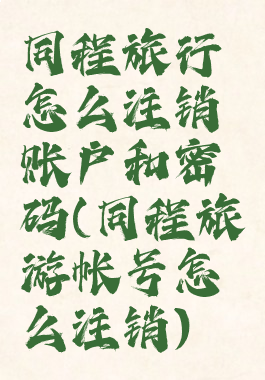 同程旅行
怎么注销
账户和密
码(同程旅
游帐号怎
么注销)